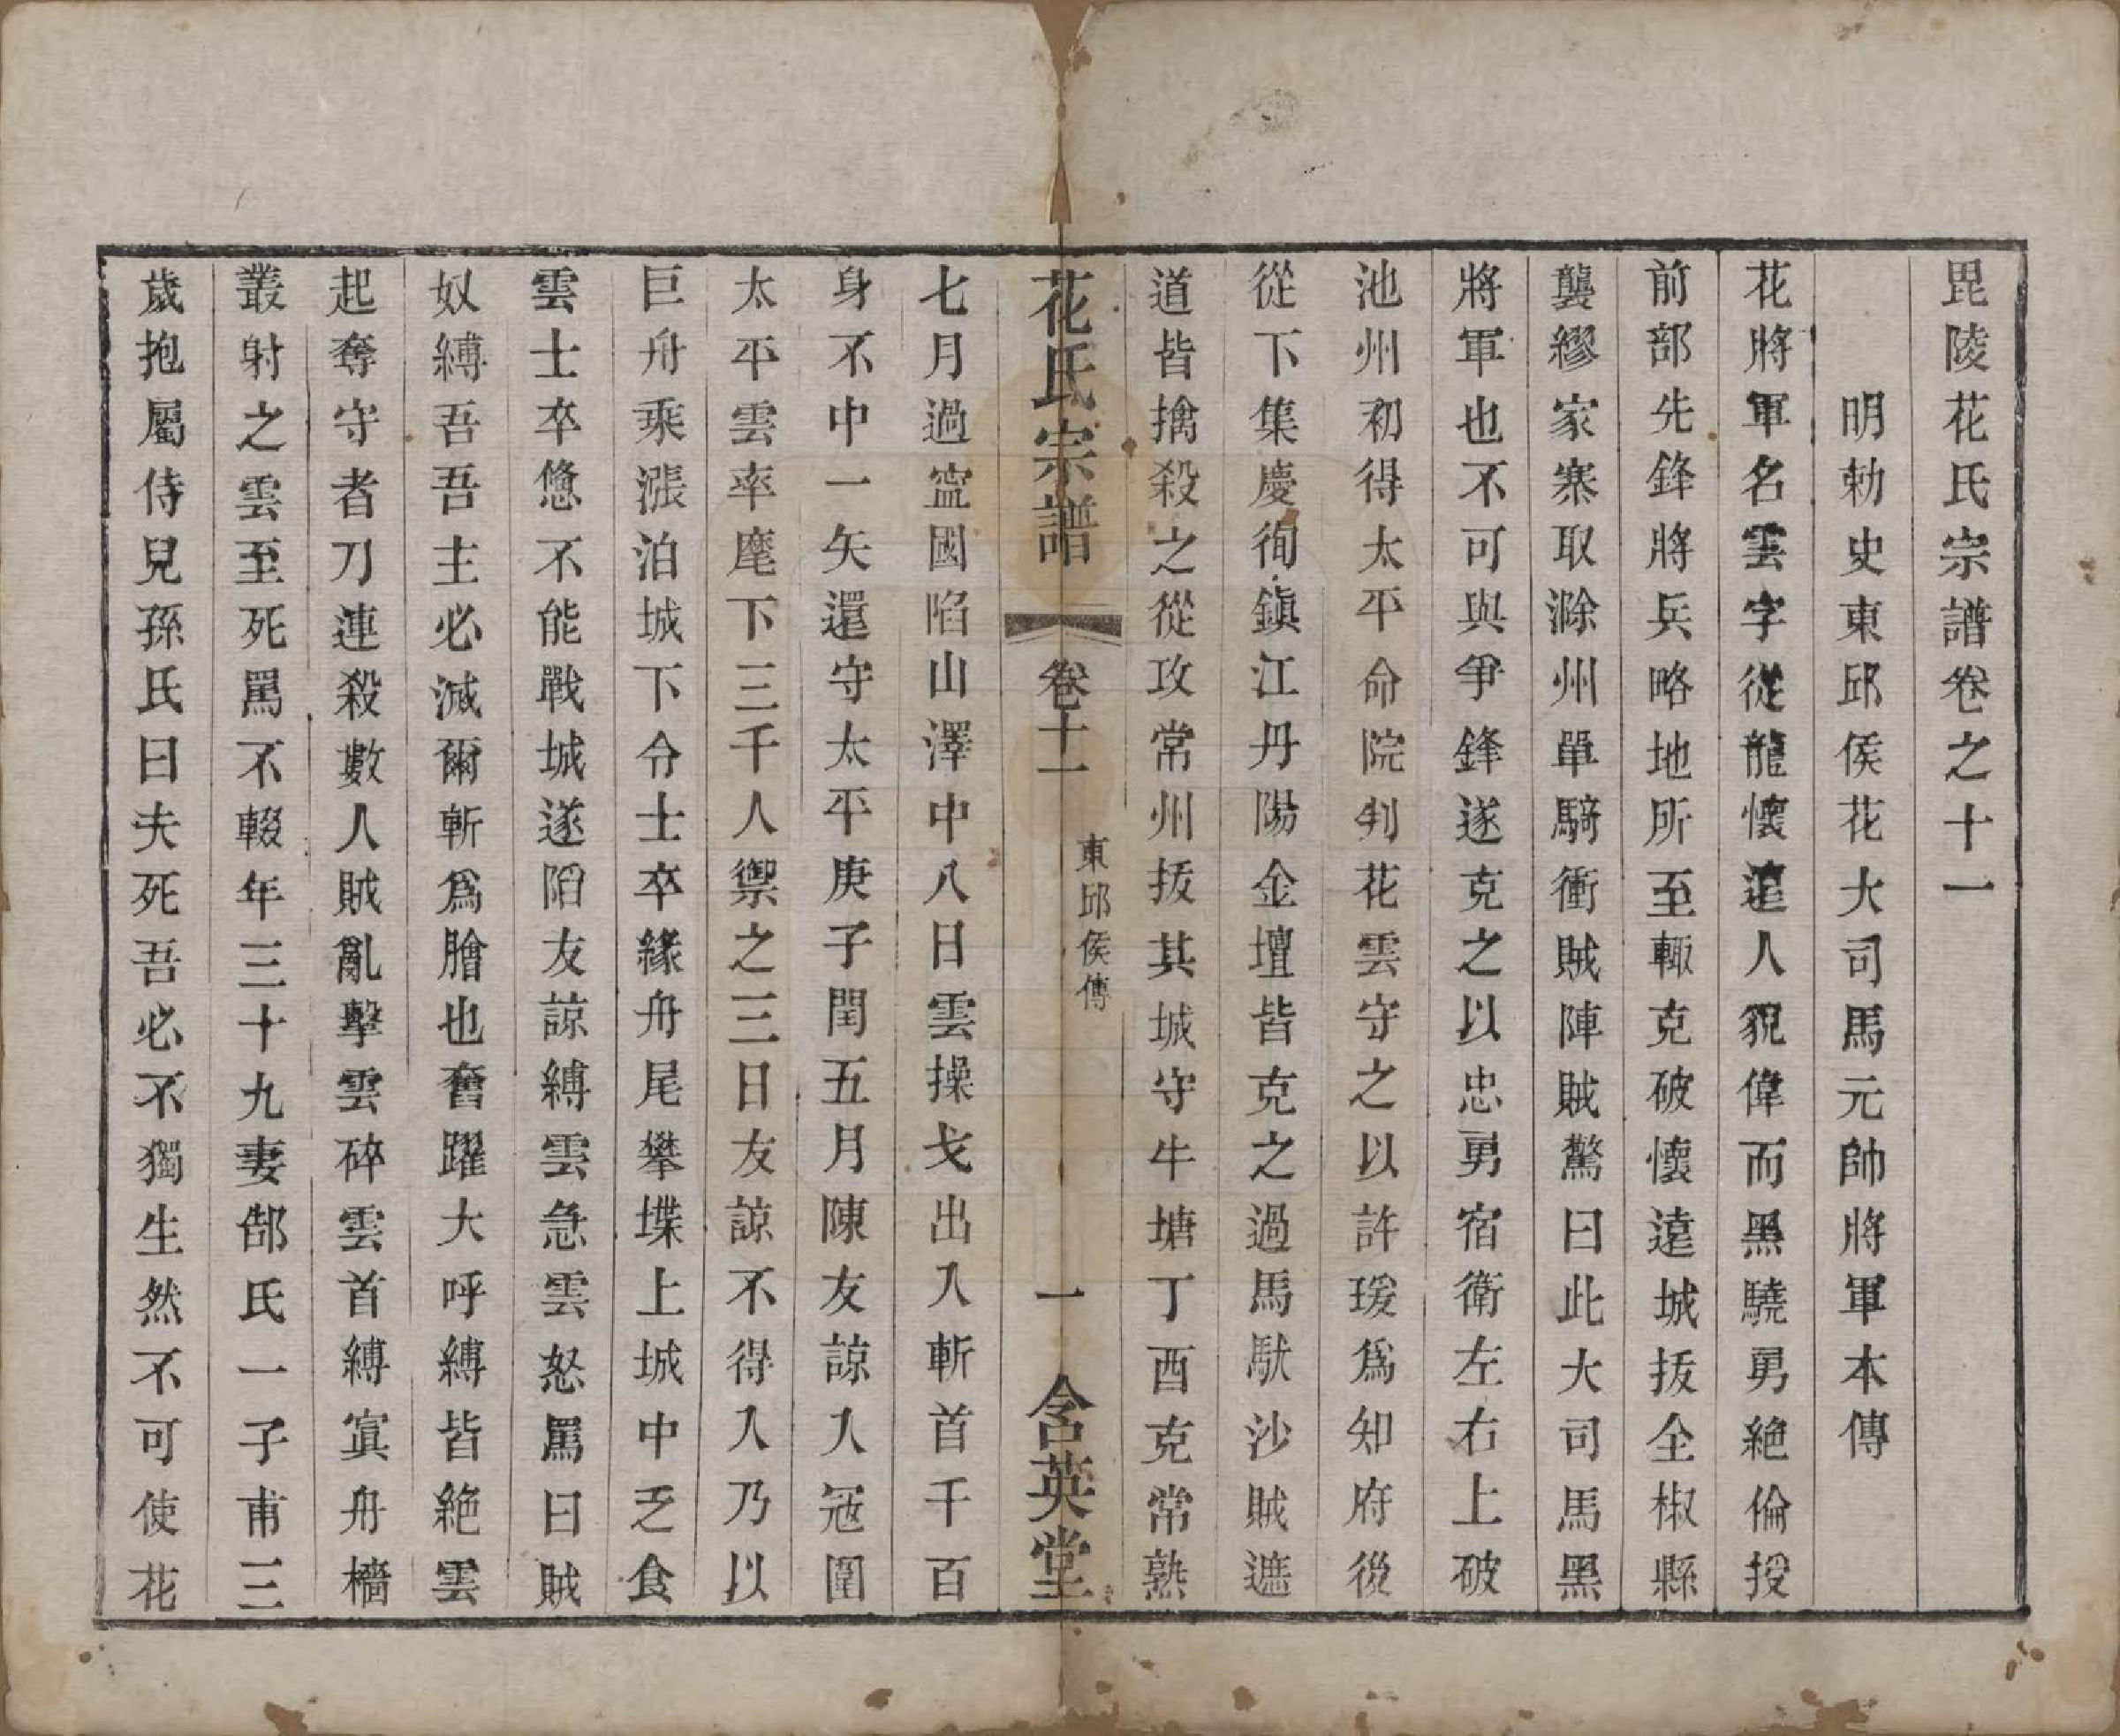 毘陵花氏宗譜卷之十一
明勅史東邱侯花大司馬元帥將軍本傳
花將軍名雲字從龍懷遠人貌偉而黑驍勇絶倫授
前部先鋒將兵略地所至輙克破懷遠城拔全椒縣
襲繆家寨取滁州單騎衝賊陣賊驚曰此大司馬黑
將軍也不可與爭鋒遂克之以忠勇宿衛左右上破
池州初得太平命院判花雲守之以許瑗爲知府後
從下集慶徇鎮江丹陽金壇皆克之過馬馱沙賊遮
道皆擒殺之從攻常州拔其城守牛塘丁酉克常熟
花氏宗譜 卷十一 東邱侯傳 一 含英堂
七月過寍國陷山澤中八日雲操戈出入斬首千百
身不中一矢還守太平庚子閏五月陳友諒入冦圍
太平雲率麾下三千人禦之三日友諒不得入乃以
巨舟乘漲泊城下令士卒緣舟尾攀堞上城中乏食
雲士卒憊不能戰城遂陷友諒縛雲急雲怒罵曰賊
奴縛吾吾主必滅爾斬爲膾也奮躍大呼縛皆絶雲
起奪守者刀連殺數人賊亂擊雲碎雲首縛寘舟檣
叢射之雲至死罵不輟年三十九妻郜氏一子甫三
歲抱屬侍兒孫氏曰夫死吾必不獨生然不可使花